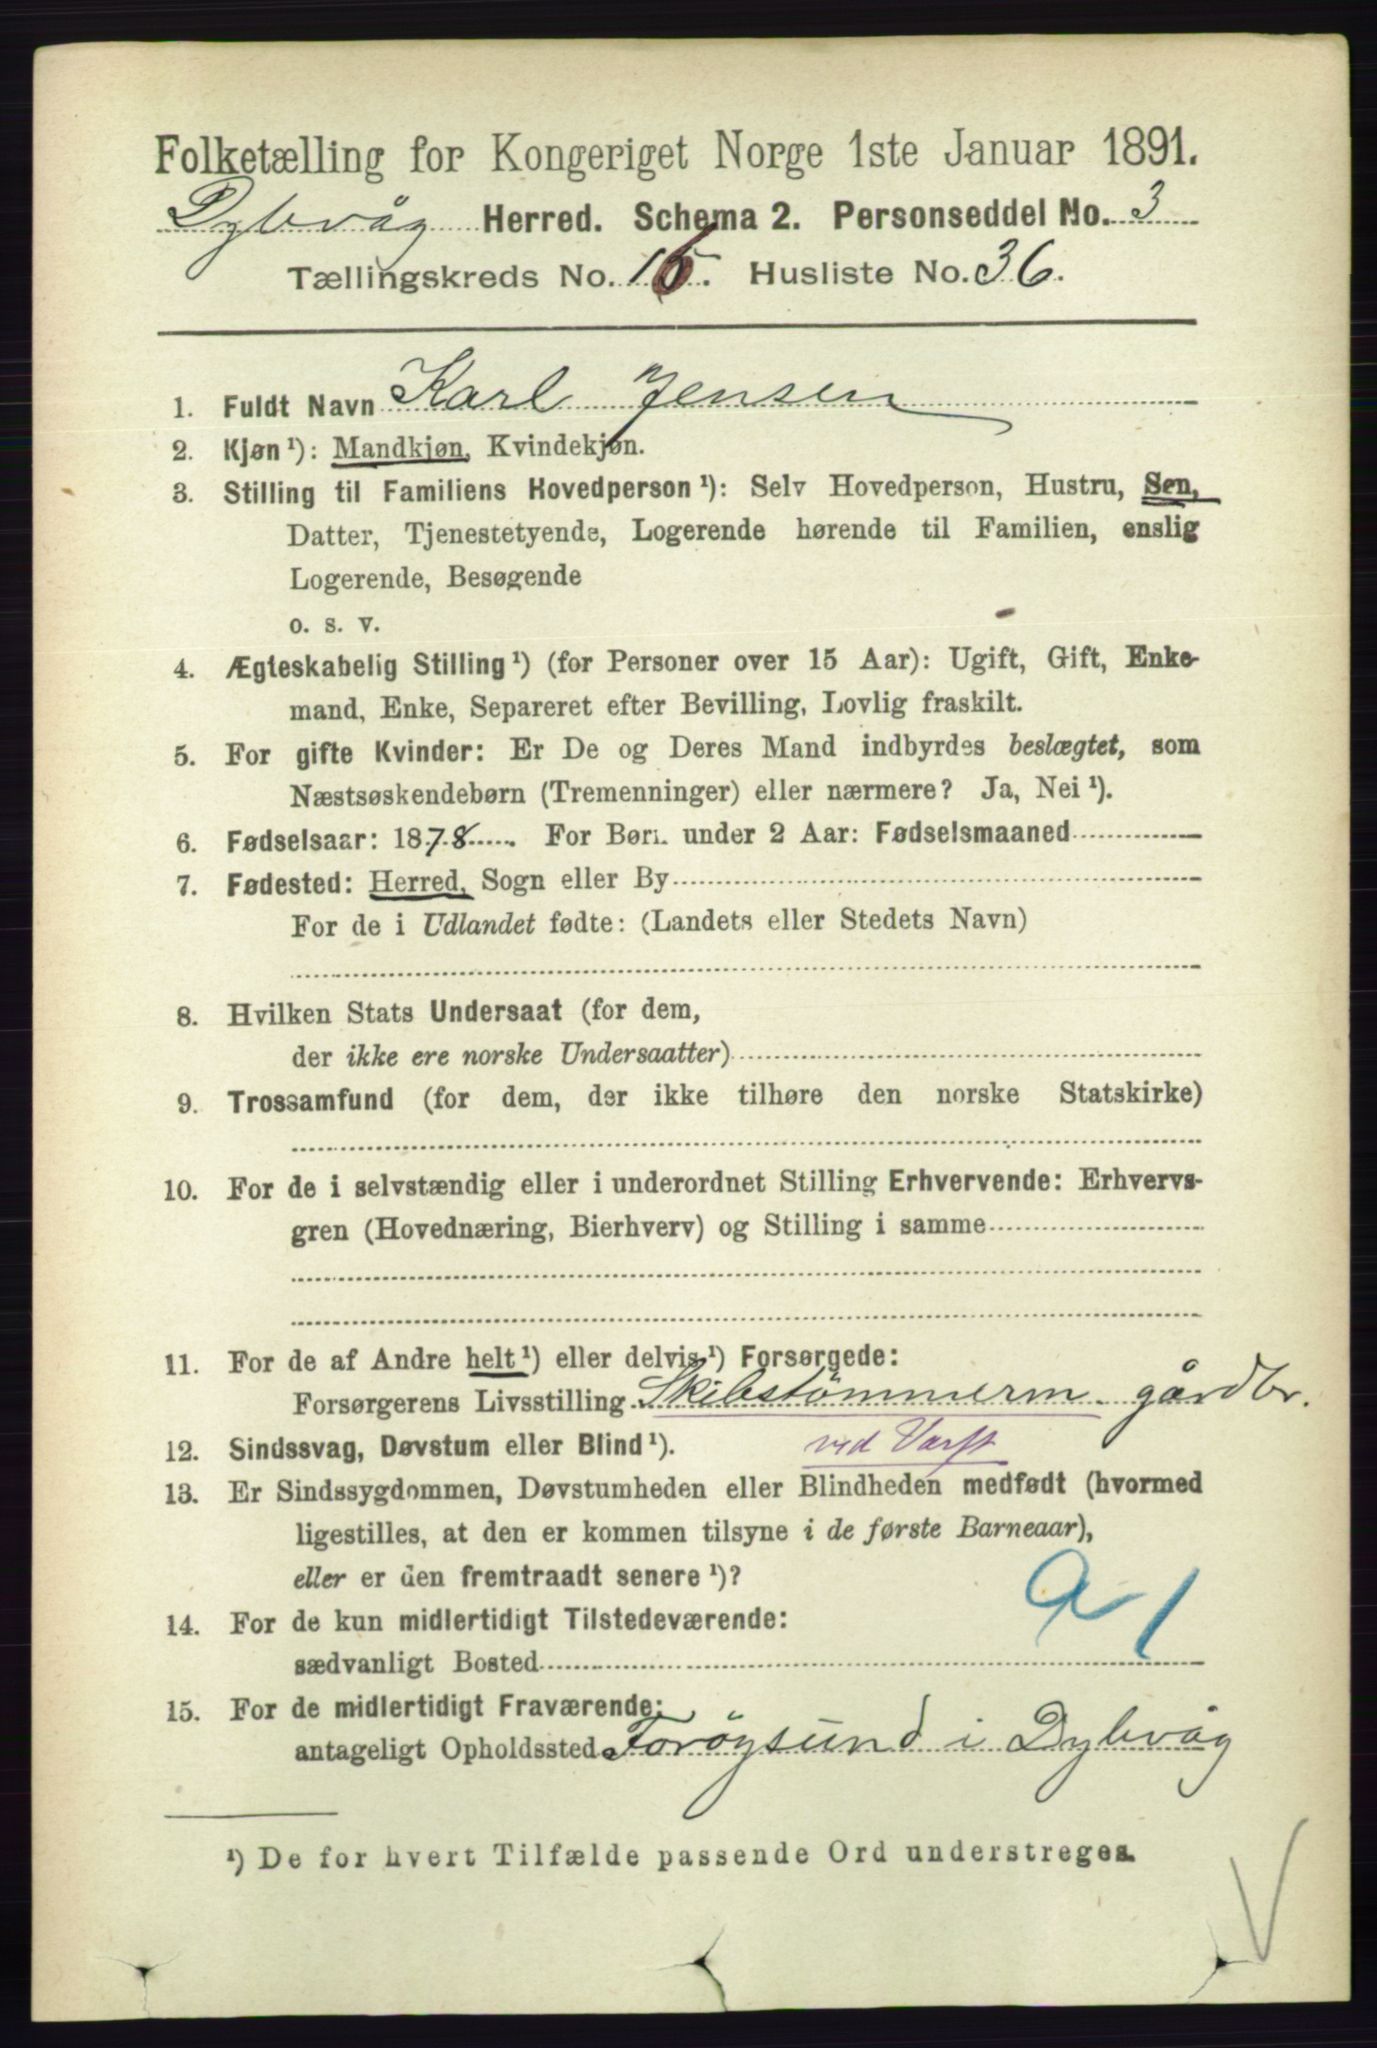 Folketælling for Kongeriget Norge 1ste Januar 1891.
Dybvåg Herred. Schema 2. Personseddel No. 3
Tællingskreds No. 16. Husliste No. 36.
1. Fuldt Navn Karl Jensen
2. Kjøn ¹): Mandkjøn, Kvindekjøn.
3. Stilling til Familiens Hovedperson ¹): Selv Hovedperson, Hustru, Søn,
Datter, Tjenestetyende, Logerende hørende til Familien, enslig
Logerende, Besøgende
o. s. v.
4. Ægteskabelig Stilling ¹) (for Personer over 15 Aar): Ugift, Gift, Enke-
mand, Enke, Separeret efter Bevilling, Lovlig fraskilt.
5. For gifte Kvinder: Er De og Deres Mand indbyrdes beslægtet, som
Næstsøskendebørn (Tremenninger) eller nærmere? Ja, Nei ¹).
6. Fødselsaar: 1878. For Børn under 2 Aar: Fødselsmaaned
7. Fødested: Herred, Sogn eller By
For de i Udlandet fødte: (Landets eller Stedets Navn)
8. Hvilken Stats Undersaat (for dem,
der ikke ere norske Undersaatter)
9. Trossamfund (for dem, der ikke tilhøre den norske Statskirke)
10. For de i selvstændig eller i underordnet Stilling Erhvervende: Erhvervs-
gren (Hovednæring, Bierhverv) og Stilling i samme
11. For de af Andre helt ¹) eller delvis ¹) Forsørgede:
Forsørgerens Livsstilling Skibstömmerm. gårdbr.
12. Sindssvag, Døvstum eller Blind ¹). ved Varft
13. Er Sindssygdommen, Døvstumheden eller Blindheden medfødt (hvormed
ligestilles, at den er kommen tilsyne i de første Barneaar),
eller er den fremtraadt senere ¹)?
14. For de kun midlertidigt Tilstedeværende:
sædvanligt Bosted
15. For de midlertidigt Fraværende:
antageligt Opholdssted Forögsund i Dybvåg
¹) De for hvert Tilfælde passende Ord understreges.